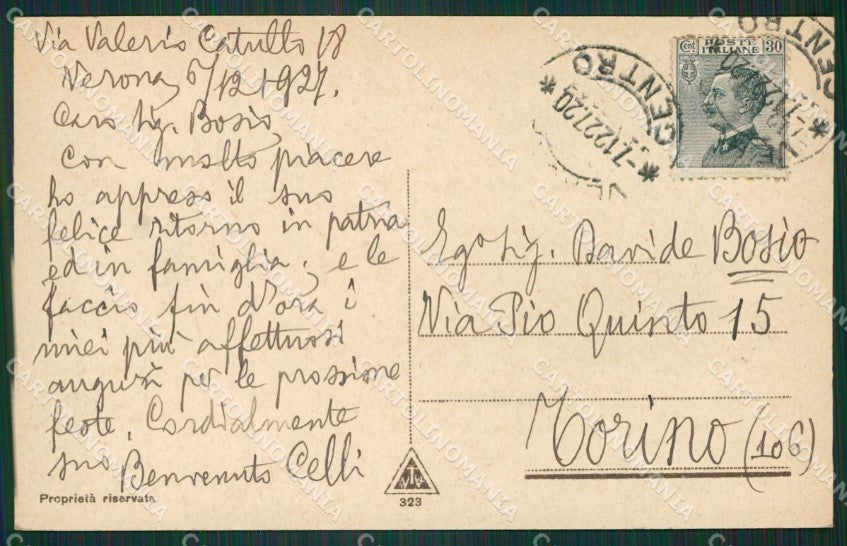 Via Valerio Catullo 18
Verona, 6/12 1927.
Caro Sig. Bosio,
Con molto piacere
ho appreso il suo
felice ritorno in patria
ed in famiglia, e le
faccio fin d'ora i
miei più affettuosi
auguri per le prossime
feste. Cordialmente
suo Benvenuto Celli
Proprietà riservata
323
Cent POSTE ITALIANE 30
CENTRO
-7.12.27.20
CENTRO
Egr Sig. Davide Bosio
Via Pio Quinto 15
Torino (106)
CARTOLINOMANIA